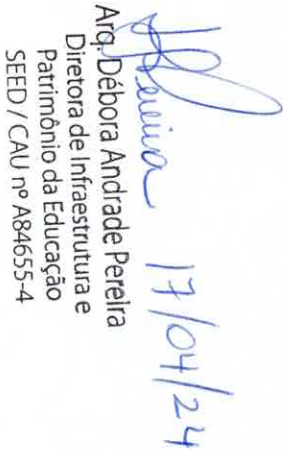 Pereira 17/04/24
Arq. Débora Andrade Pereira
Diretora de Infraestrutura e
Patrimônio da Educação
SEED / CAU nº A84655-4